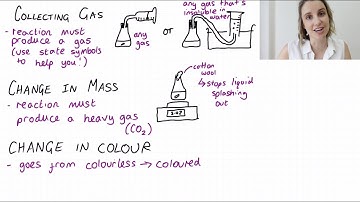 COLLECTING GAS
- reaction must
produce a gas
(use state symbols
to help you!)
any
gas
or
any gas that's
insoluble in
water
CHANGE IN MASS
- reaction must
produce a heavy gas
(CO₂)
cotton
wool
↳ stops liquid
splashing
out
CHANGE IN COLOUR
- goes from colourless → coloured